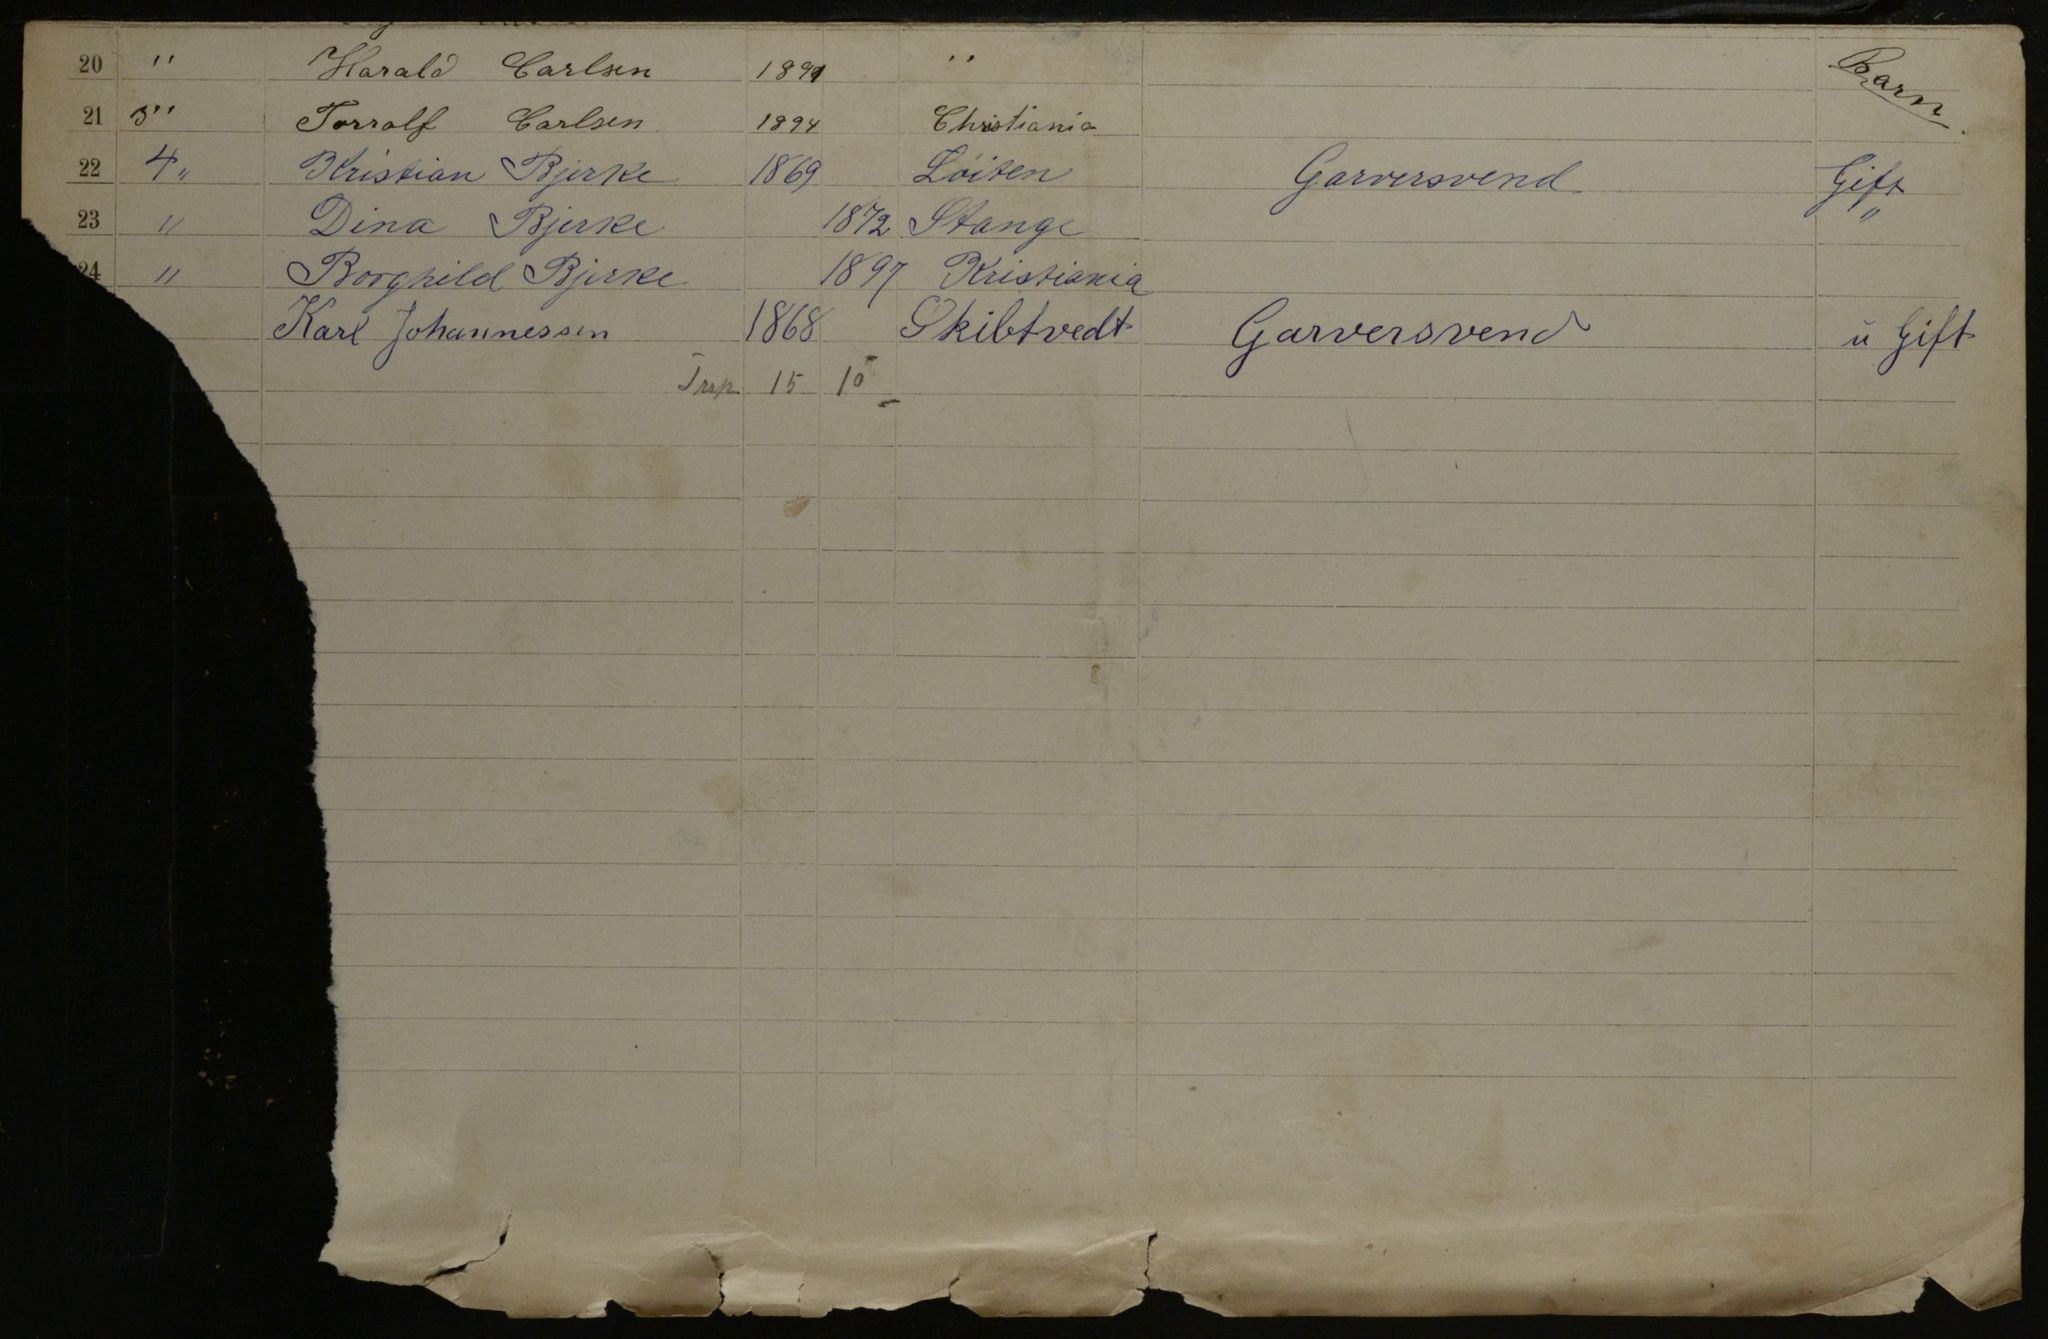 20 " Harald Carlsen 1891 " Barn
21 3" Torralf Carlsen 1894 Christiania
22 4 " Kristian Bjerke 1869 Löiten Garversvend Gift
23 " Dina Bjerke 1872 Stange "
24 " Borghild Bjerke 1897 Kristiania
Karl Johannessen 1868 Skibtvedt Garversvend u Gift
15 10